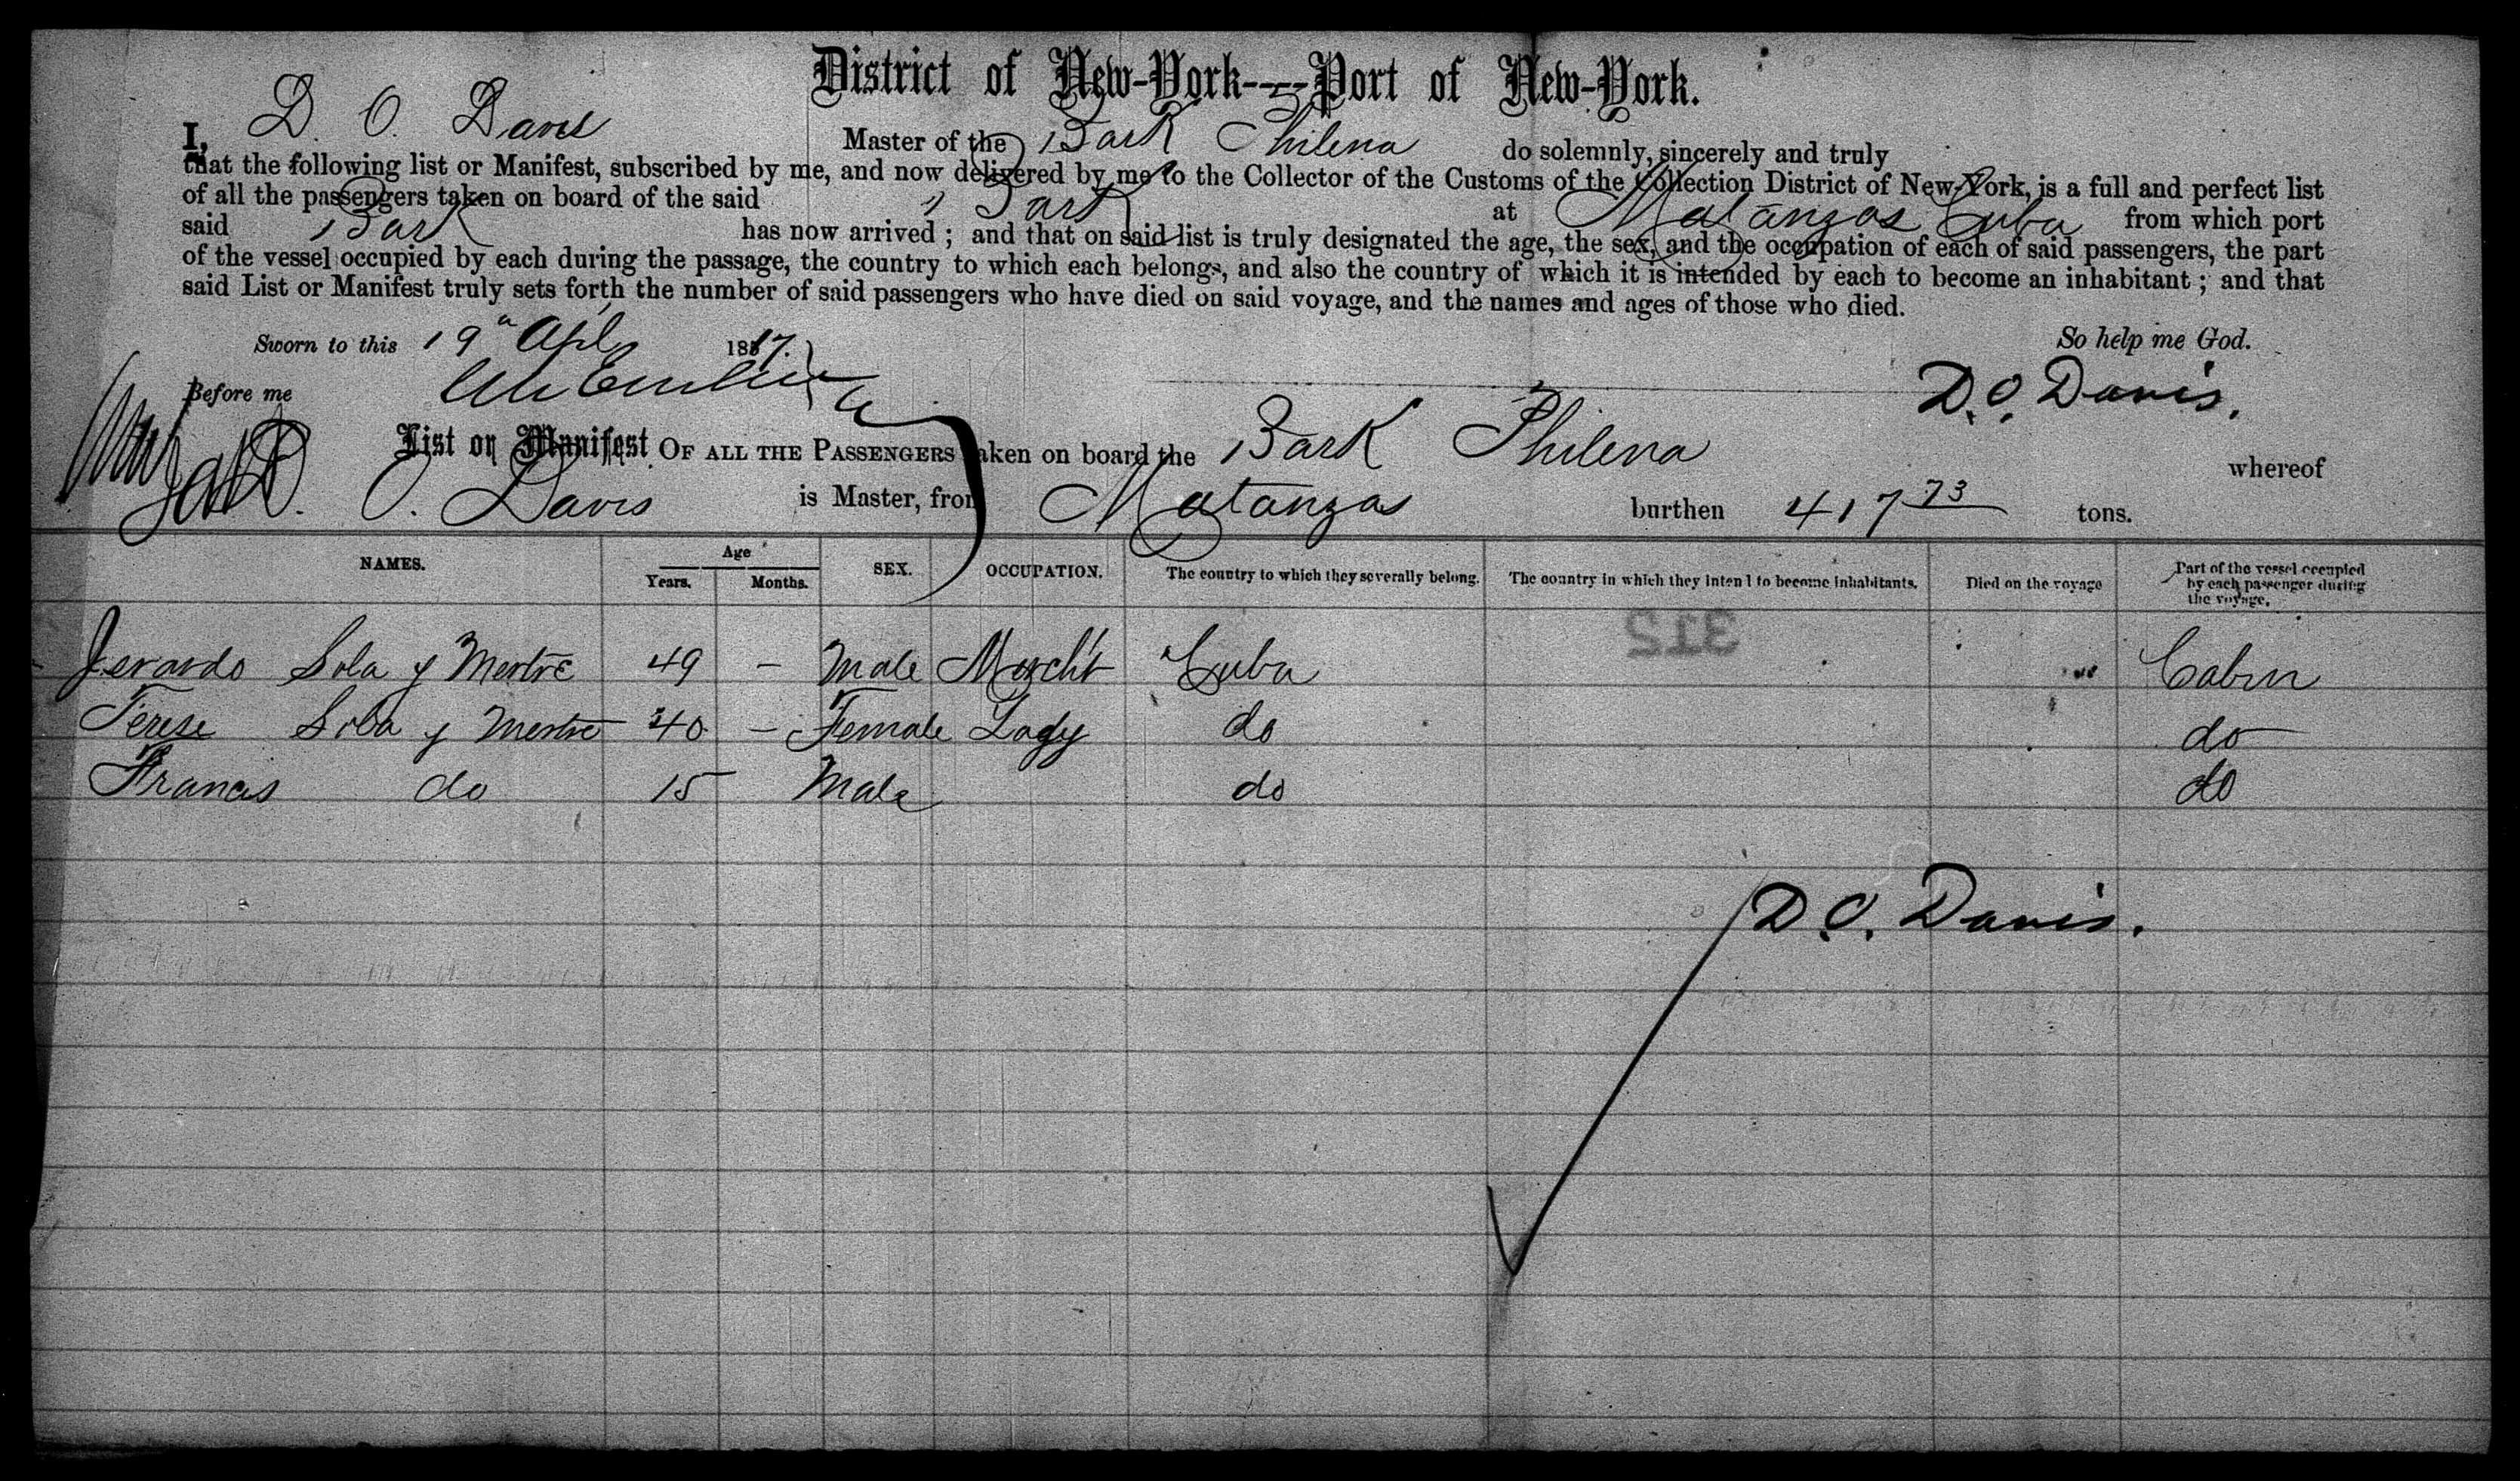 District of New-York----Port of New-York.
I, D. O. Davis Master of the Bark Philena do solemnly, sincerely and truly
that the following list or Manifest, subscribed by me, and now delivered by me to the Collector of the Customs of the Collection District of New-York, is a full and perfect list
of all the passengers taken on board of the said Bark at Matanzas Cuba from which port
said Bark has now arrived ; and that on said list is truly designated the age, the sex, and the occupation of each of said passengers, the part
of the vessel occupied by each during the passage, the country to which each belongs, and also the country of which it is intended by each to become an inhabitant ; and that
said List or Manifest truly sets forth the number of said passengers who have died on said voyage, and the names and ages of those who died.
Sworn to this 19th Apl 1887. So help me God.
Before me D. O. Davis.
List or Manifest OF ALL THE PASSENGERS taken on board the Bark Philena whereof
D. O. Davis is Master, from Matanzas burthen 417 73 tons.
NAMES. Age Years. Months. SEX. OCCUPATION. The country to which they severally belong. The country in which they intend to become inhabitants. Died on the voyage Part of the vessel occupied by each passenger during the voyage.
312
Jerardo Sola y Mestre 49 - Male Mercht Cuba " Cabin
Terese Sola y Mestre 40 - Female Lady do do
Francis do 15 Male do do
D. O. Davis.